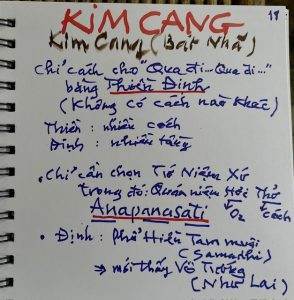 18
KIM CANG
Kim Cang (Bát Nhã)
Chỉ cách cho "Qua đi... Qua đi..."
bằng Thiền Định
(Không có cách nào khác)
Thiền : nhiều cách
Định : nhiều tầng
• Chỉ cần chọn Tứ Niệm Xứ
trong đó: Quán niệm Hơi Thở
O₂ cách
Anapanasati
• Định : Phổ Hiền Tam muội
(Samadhi)
⇒ mới thấy Vô Tướng
(Như Lai)